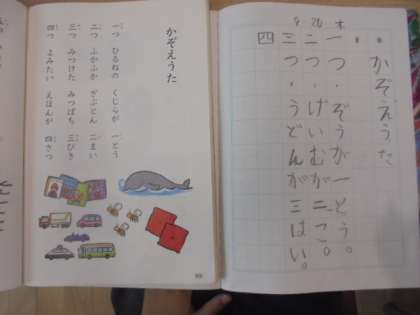 かぞえうた
一つ・ぞうが一とう。
二つ・げいむが二こ。
三つ・うどんが三はい。
四
かぞえうた
一つ ひるねの くじらが 一とう
二つ ふかふか ざぶとん 二まい
三つ みつけた みつばち 三びき
四つ よみたい えほんが 四さつ